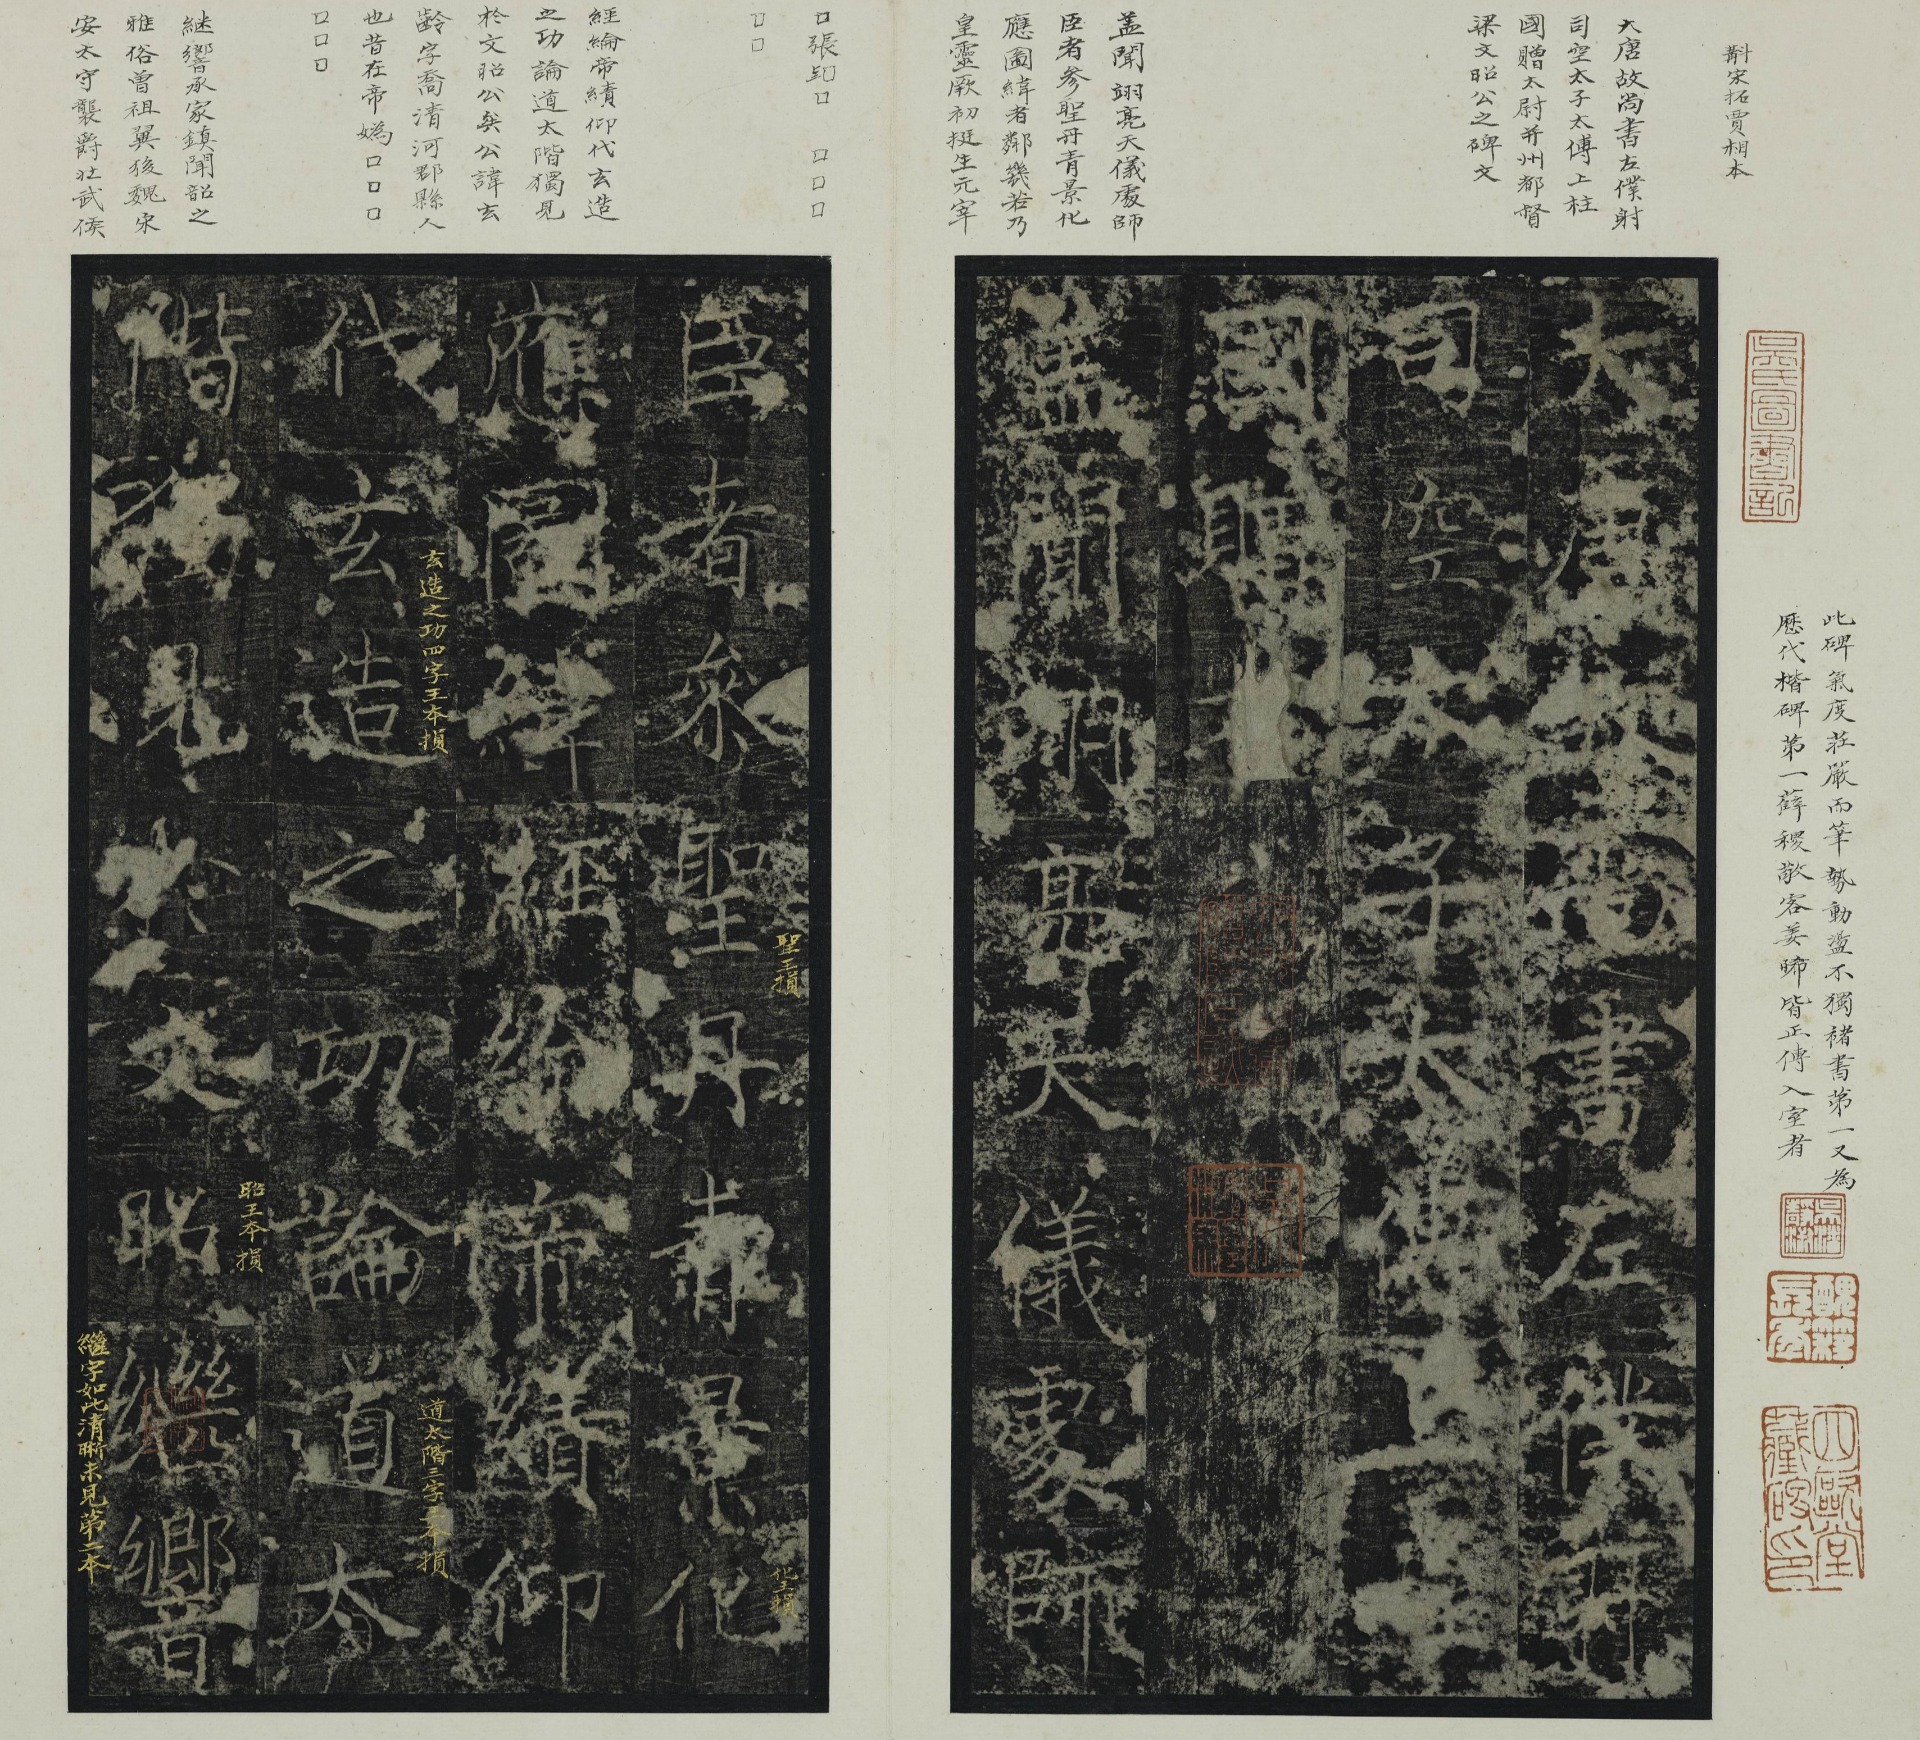 斠宋拓賈相本
大唐故尚書左僕射
司空太子太傅上柱
國贈太尉并州都督
梁文昭公之碑文
蓋聞翊亮天儀處師
臣者參聖丹青景化
應圖緯者鄰幾若乃
皇靈厥初挺生元宰
□張□ □□□
□□
經綸帝績仰代玄造
之功論道太階獨見
於文昭公矣公諱玄
齡字喬清河郡縣人
也昔在帝媯□□□
□□□
継響承家鎮聞韶之
雅俗曾祖翼後魏宋
安太守襲爵壯武侯
此碑氣度莊嚴而筆勢動盪不獨褚書第一又為
歷代楷碑第一薛稷敬客姜晞皆正傳入室者
大唐故尚書左僕射
司空太子太傅上柱
國贈太
蓋聞翊亮天儀處師
臣者參聖丹青景化
應圖緯經綸帝績仰
代玄造之功論道太
階獨見於文昭繼響
聖王損
化王損
玄造之功四字王本損
道太階三字王本損
昭王本損
繼字如此清晰未見第二本